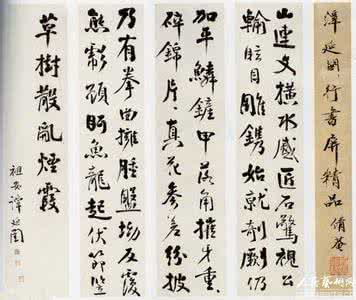 譚延闓行書屏精品 倩菴
山連文橫水蹙匠石驚視公
輸眩目雕鐫始就剞劂仍
加平鱗鏟甲落角摧牙重々
碎錦片々真花參差紛披
乃有拳曲擁腫盤坳反覆
熊彪顧盼魚龍起伏節豎
草樹散亂煙霞
祖安譚延闓